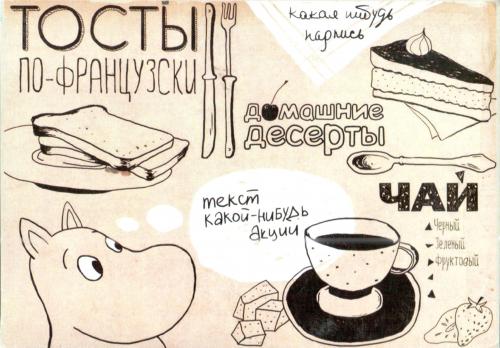 ТОСТЫ
ПО-ФРАНЦУЗСКИ
какая нибудь
надпись
домашние
десерты
текст
какой-нибудь
акции
ЧАЙ
Черный
Зеленый
Фруктовый